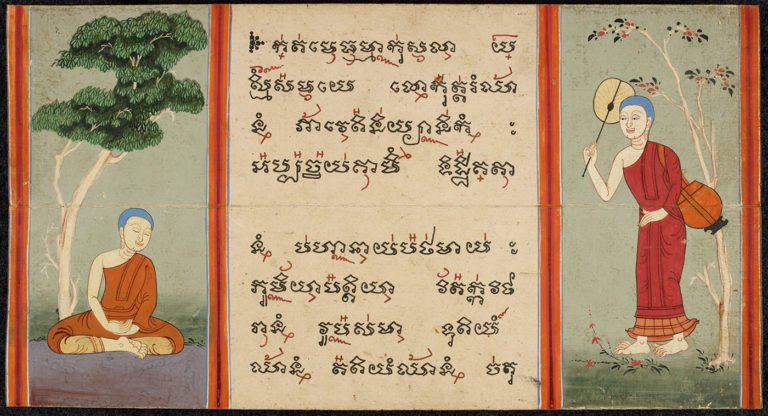 កតមេធម្មាកុសលា យ
ស្មឹសមយេ លោកុត្តរំឈា
នំ ភាវេតិនិយ្យានិកំ ះ
អបចយគាមឹ ទិដ្ឋិគតា
នំ បហានាយបឋមាយ ះ
ភូមិយាបត្តិយា វិតក្កវិចា
រានំ វូបសមា ទុតិយំ
ឈានំ តតិយំឈានំ ចតុ